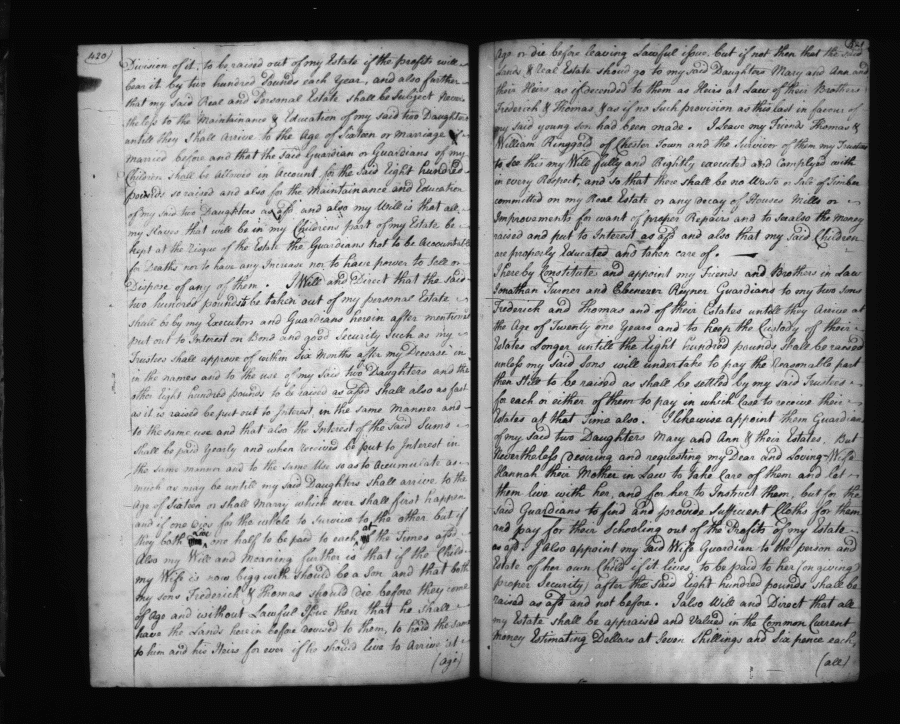 420)
Division of it, to be raised out of my Estate if the profits will
bear it by two hundred pounds each Year, and also further
that my Said Real and Personal Estate shall be Subject Never
theless to the Maintainance & Education of my said two Daughters
untill they Shall Arrive to the Age of Sixteen or Marriage if
married before and that the Said Guardian or Guardians of my
Children shall be Allowed in Account for the Said Eight hundred
pounds so raised and also for the Maintainance and Education
of my said two Daughters as afsd and also my Will is that all
my Slaves that will be in my Childrens part of my Estate be
kept at the Risque of the Estate the Guardians not to be Accountable
for Deaths nor to have any Increase nor to have power to Sell or
Dispose of any of them. I Will and Direct that the said
two hundred pounds to be taken out of my personal Estate
shall be by my Executors and Guardians herein after mentioned
put out to Interest on Bond and good Security Such as my
Trustees shall approve of within Six Months after my Decease in
in the names and to the use of my Said two Daughters and the
other Eight hundred pounds to be raised as afsd shall also as fast
as it is raised be put out to Interest, in the same Manner and
to the same use and that also the Interest of the Said Sums
shall be paid Yearly and when received be put to Interest in
the same manner and to the same Use so as to Accumulate as
much as may be untill my said Daughters shall arrive to the
Age of Sixteen or shall Marry which ever shall first happen
and if one Dies for the whole to Survive to the other but if
they both Live one half to be paid to each at the Times afsd.
Also my Will and Meaning further is that if the Child
my Wife is now bigg with should be a Son and that both
my sons Frederick & Thomas should die before they come
of Age and without Lawful Issue then that he shall
have the Lands herein before devised to them, to hold the same
to him and his Heirs for ever if he should live to Arrive at
(age)
Age or die before leaving Lawful issue, but if not then that the said
Lands & Real Estate should go to my said Daughters Mary and Ann and
their Heirs as if decended to them as Heirs at Law of their Brothers
Frederick & Thomas & as if no Such provision as this last in favour of
my Said young son had been made. I leave my Friends Thomas &
William Ringgold of Chester Town and the Survivor of them my Trustees
to See this my Will fully and Rightly executed and Complyed with
in every Respect, and so that there shall be no Waste or Sale of Timber
committed on my Real Estate or any decay of Houses Mills or
Improvements for want of proper Repairs and to See also the Money
raised and put to Interest as afsd and also that my Said Children
are properly Educated and taken care of.
I hereby Constitute and appoint my Friends and Brothers in Law
Jonathan Turner and Ebenezer Reyner Guardians to my two Sons
Frederick and Thomas and of their Estates untill they Arrive at
the Age of Twenty one Years and to keep the Custody of their
Estates Longer untill the Eight hundred pounds Shall be raised
unless my Said Sons will undertake to pay the Reasonable part
then Still to be raised as shall be settled by my said Trustees
for each or either of them to pay in which Case to receive their
Estates at that Time also. I likewise appoint them Guardian
of my Said two Daughters Mary and Ann & their Estates. But
Nevertheless Desiring and requesting my Dear and Loving Wife
Hannah their Mother in Law to take Care of them and let
them live with her, and for her to Instruct them, but for the
Said Guardians to find and provide Sufficient Cloths for them
and pay for their Schooling out of the Profits of my Estate
as afsd. I also appoint my Said Wife Guardian to the person and
Estate of her own Child if it lives to be paid to her (on giving
proper Security) after the Said Eight hundred pounds shall be
raised as afsd and not before. I also Will and Direct that all
my Estate shall be appraised and Valued in the Common Current
Money Estimating Dollars at Seven Shillings and Six pence each,
(all)